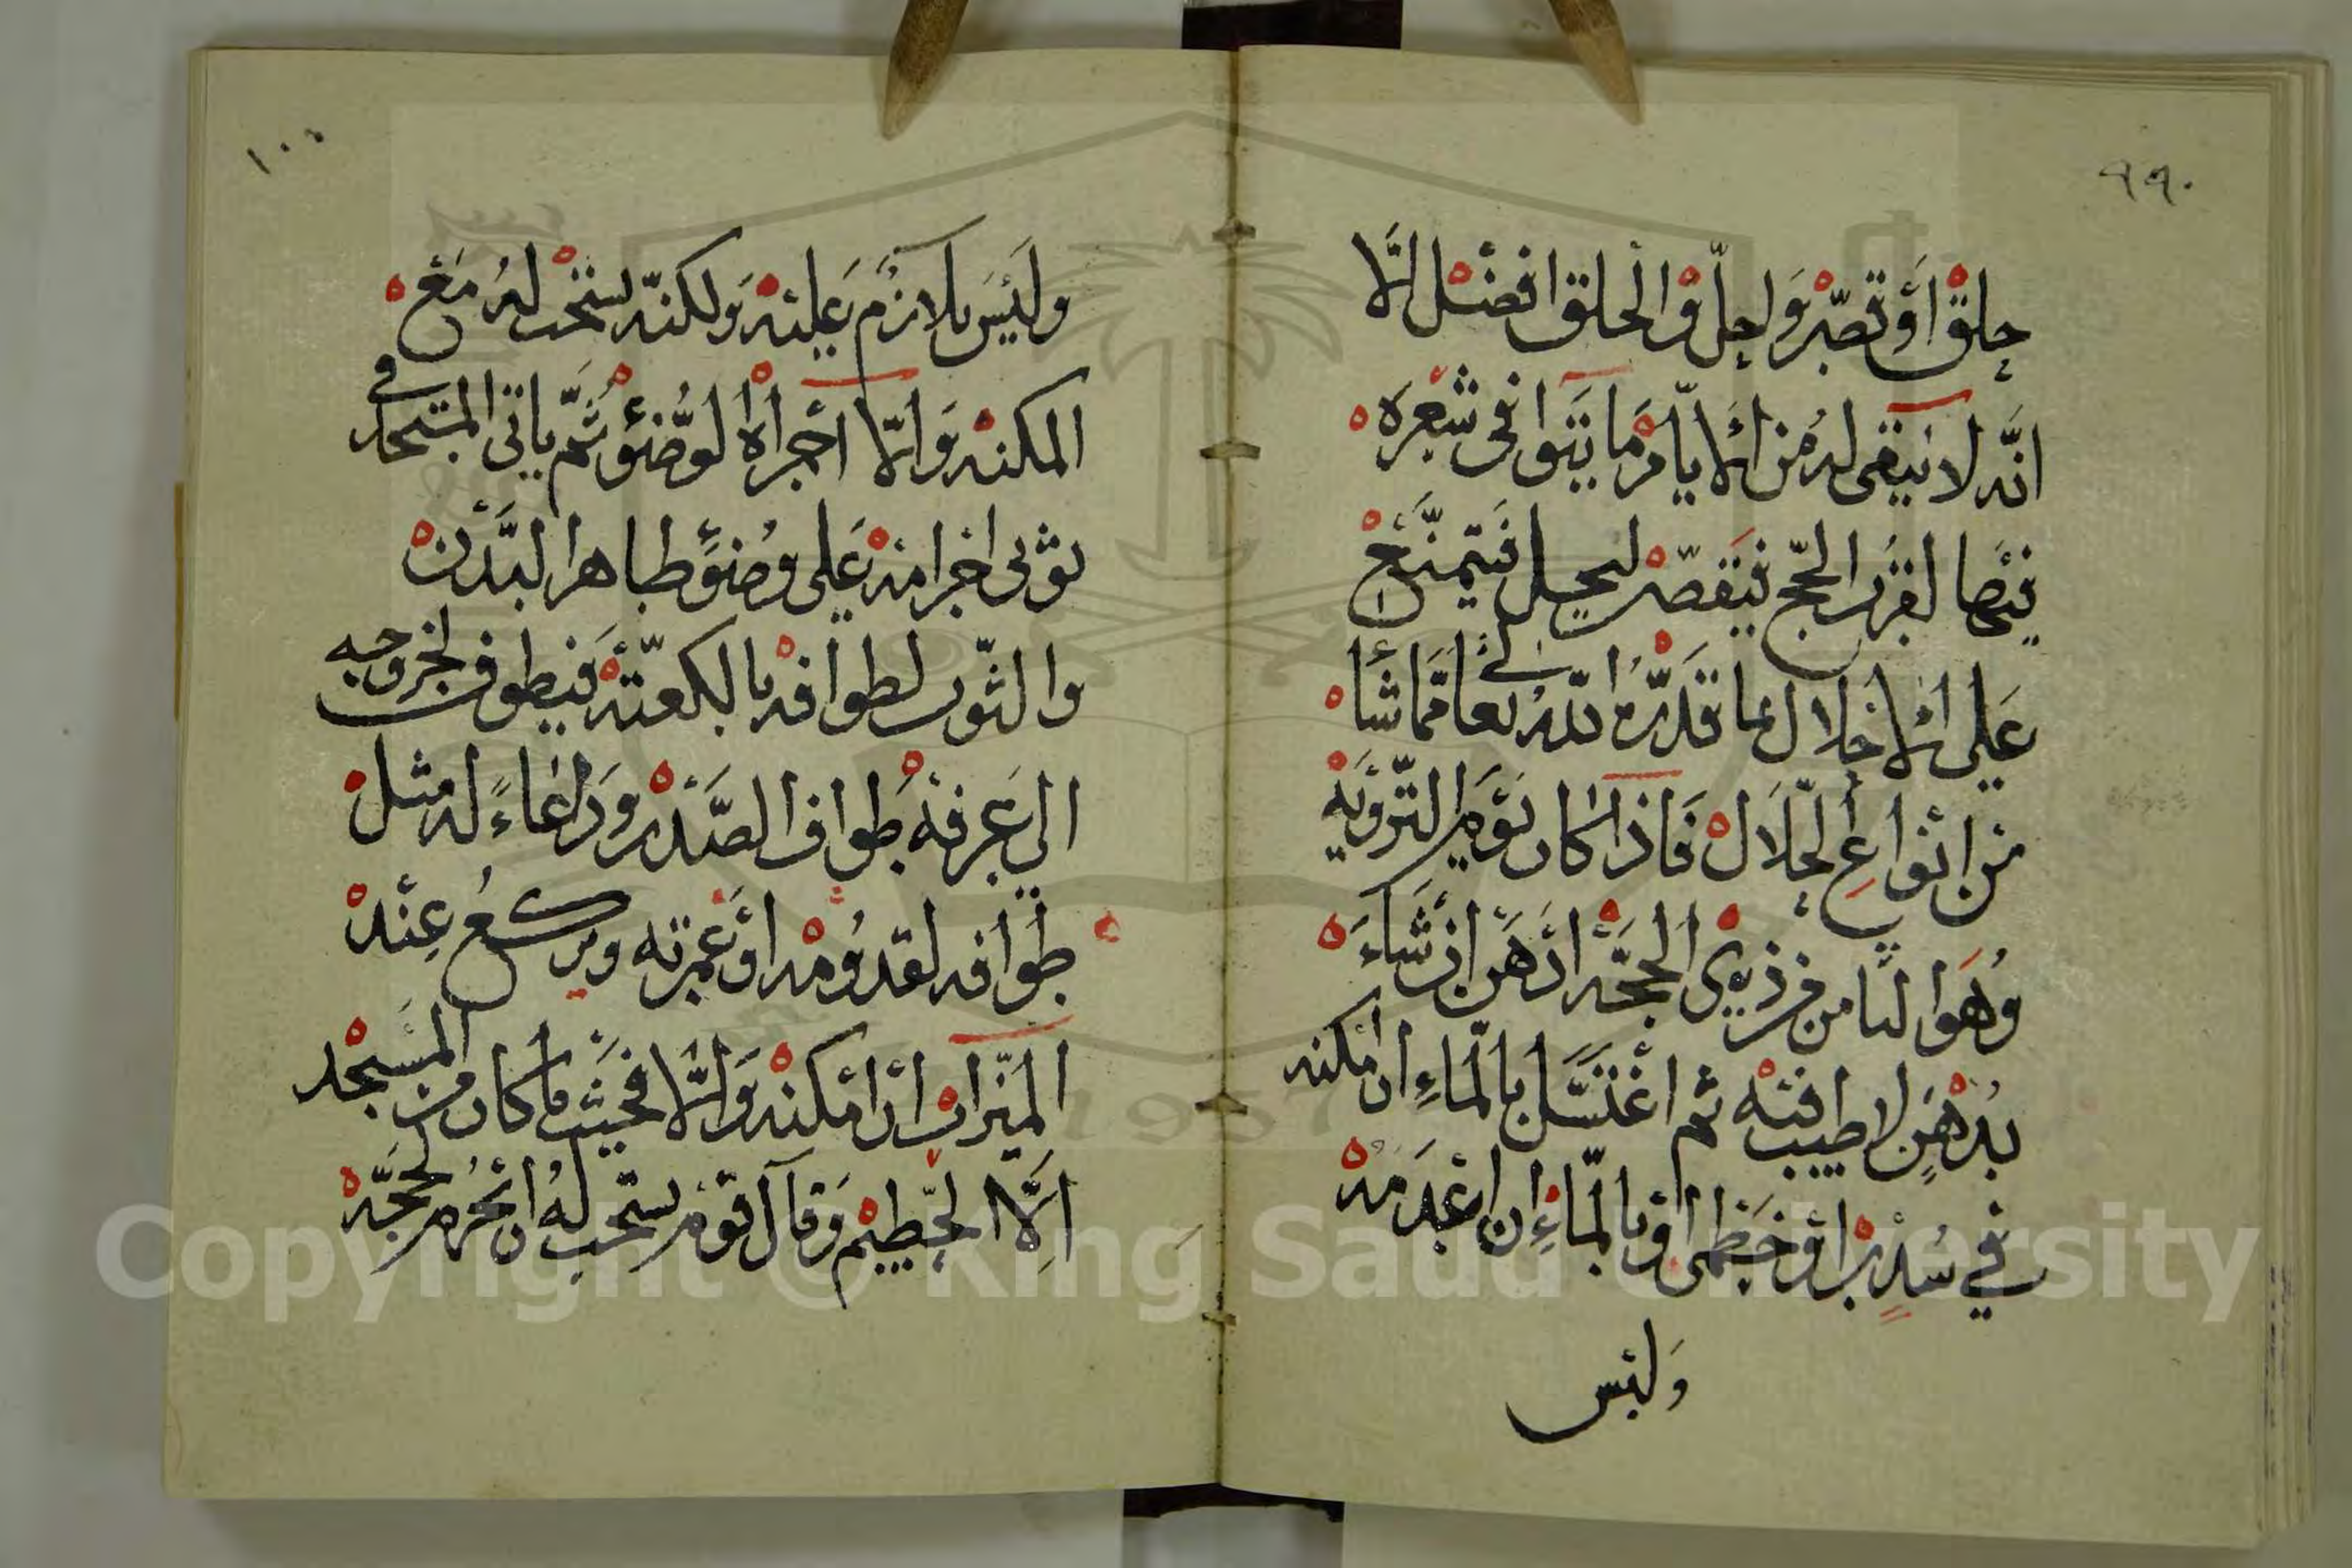 ٩٩
حلق او تقصّر واحلّ والحلق افضل الّا
انّه لا يبقى له من الايّام ما ينبوا فى شعره
فيها لقرب الحجّ فيقصّر ليحل فيتمتّع
على الاحلال بما قدّره الله تعالى ممّا شا
من انواع الحلال فاذا كان يوم التّروية
وهوا لثامن من ذي الحجّة ادهن ان شاء
بدهن لا طيب فيه ثم اغتسل بالماء ان امكنه
في سدر او خطمى او بالماء ان عدمه
وليس
١٠٠
وليس بلازم عليه ولكنّه يستحب له مع
المكنه والّا اجراه لوضئو ثمّ ياتى المسجد في
ثوبى احرامه على وضئو طاهر البدن
والثّوب لطوافه بالكعبة فيطوف لخروجه
الى عرفة طواف الصّدر ودعاءً له مثل
طوافه لقدومه او عمرته ويركع عند
الميزاب ان امكنه والّا فحيث ما كان من المسجد
الّا الحطيم وقال قوم يستحب له ان يحرم لحجّه
Copyright © King Saud University
1957